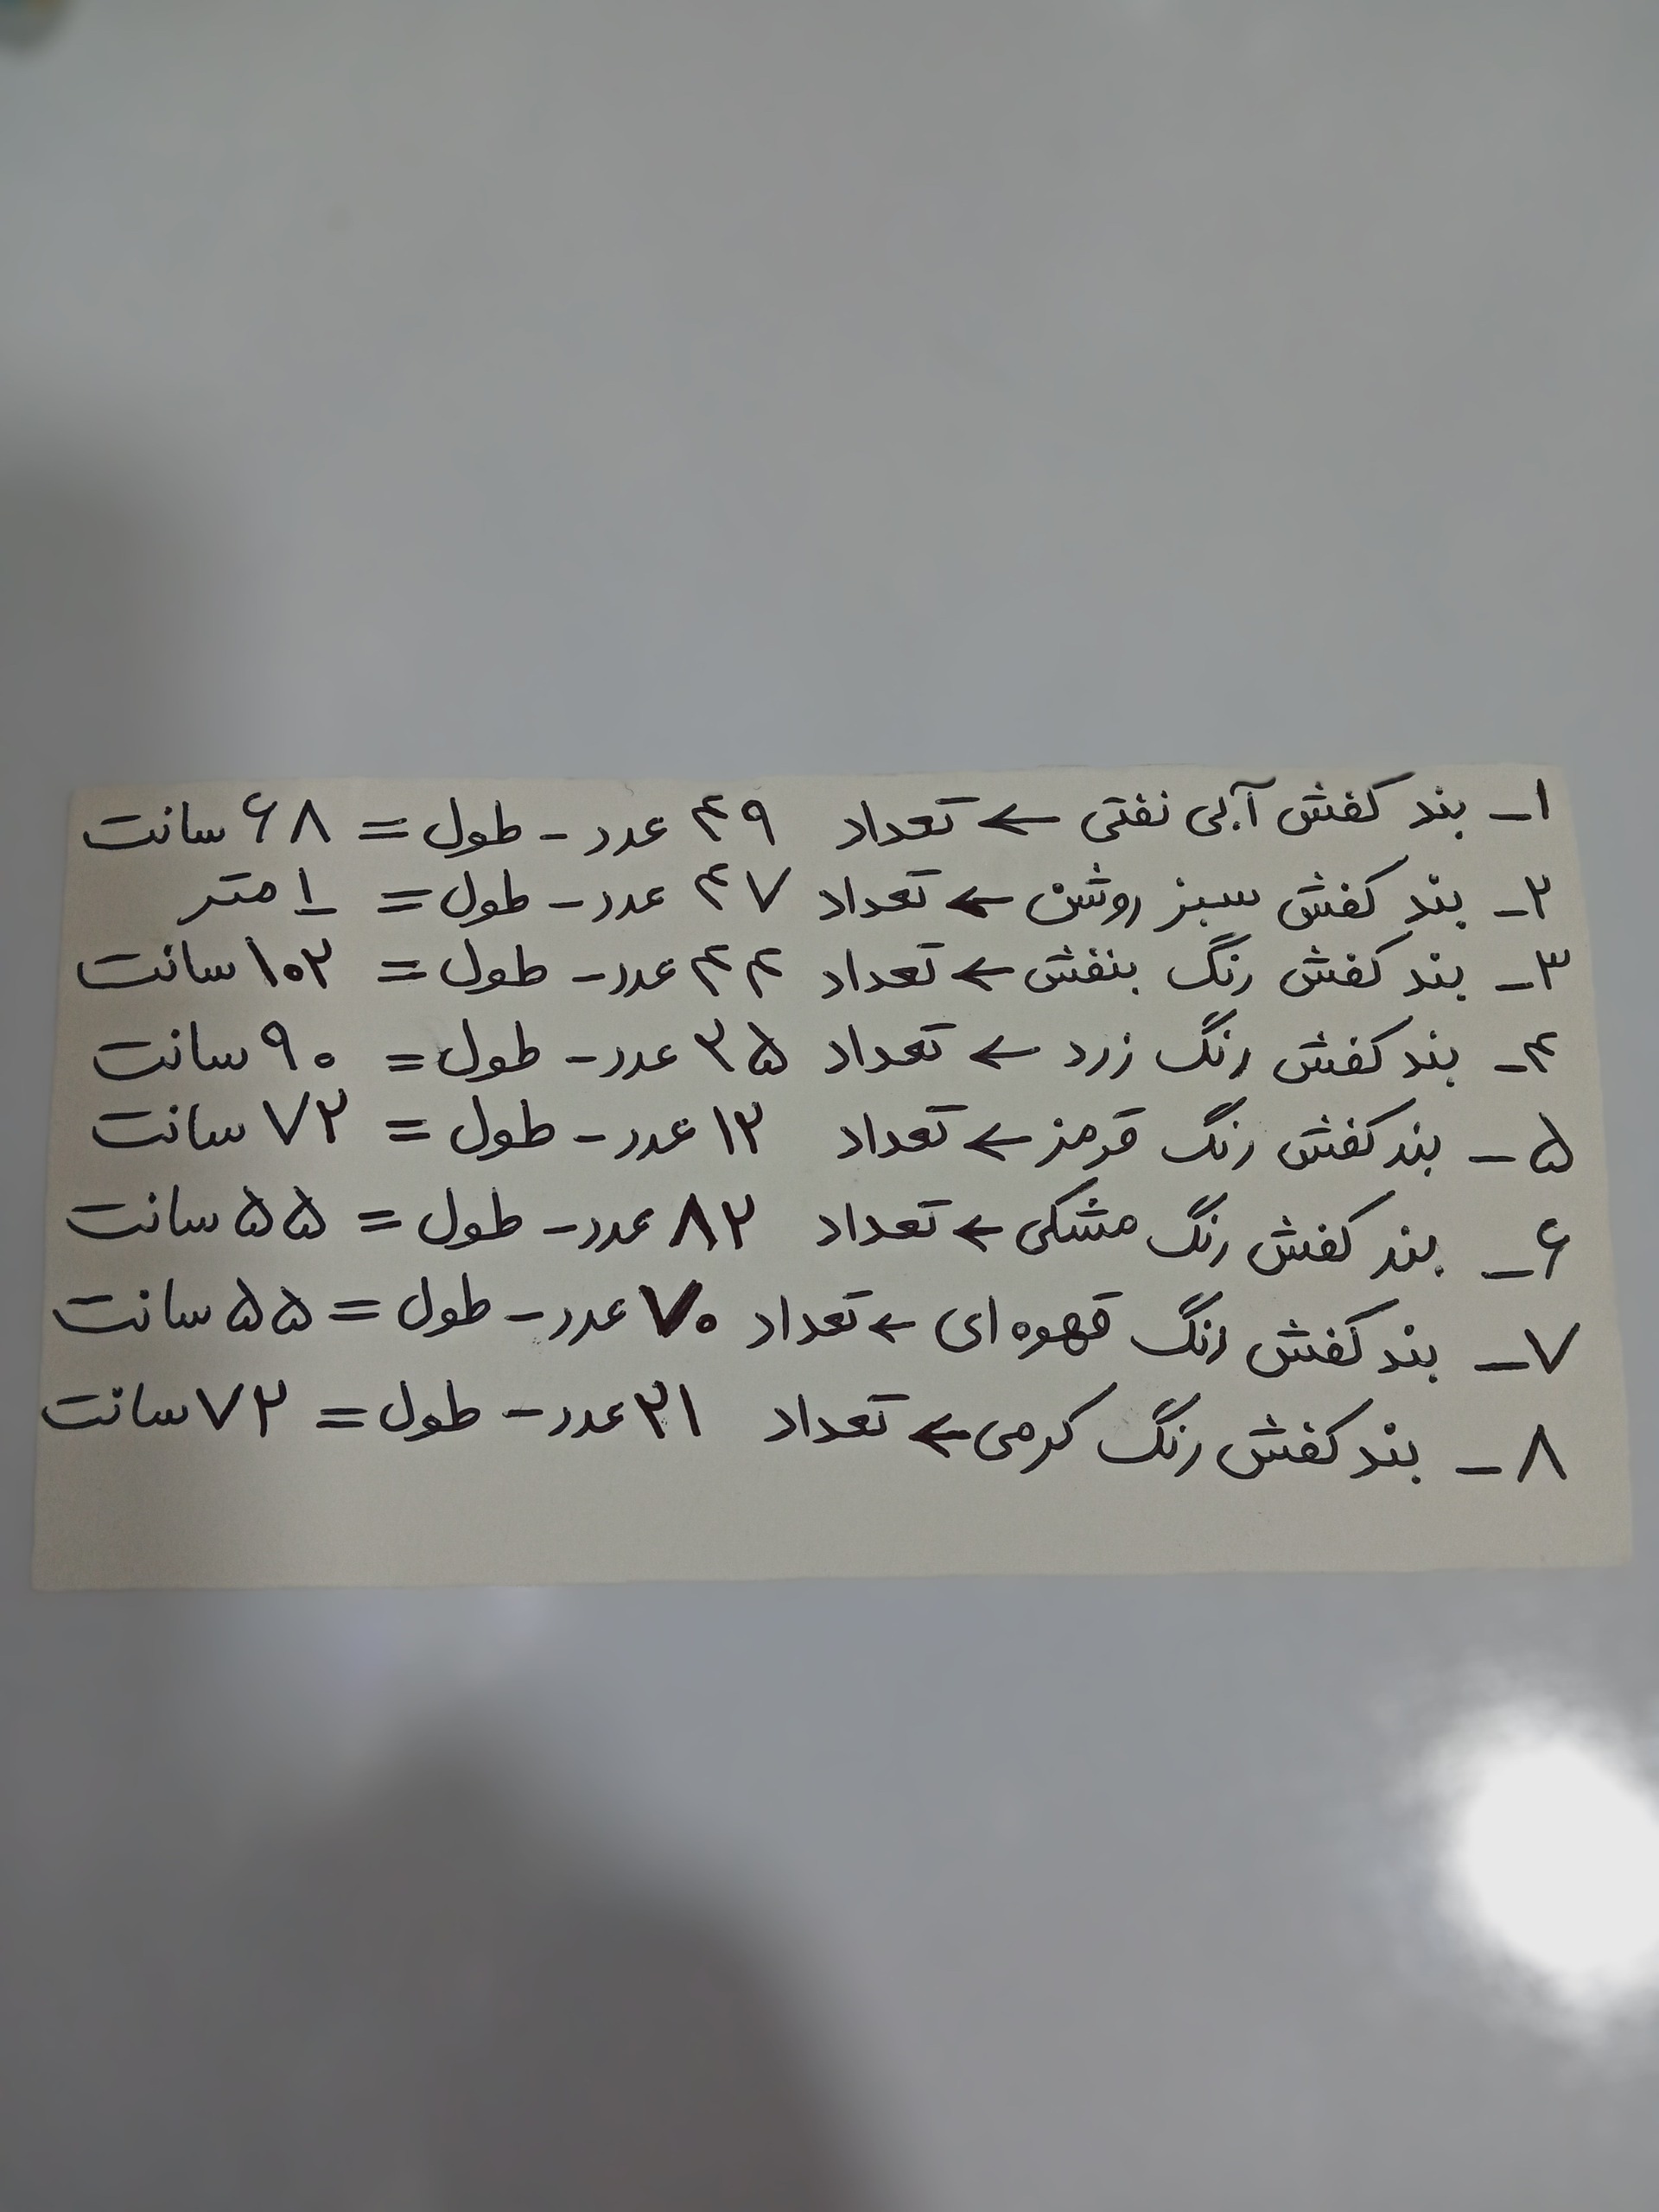 ۱- بند کفش آبی نفتی ← تعداد ۴۹ عدد - طول = ۶۸ سانت
۲- بند کفش سبز روشن ← تعداد ۴۷ عدد - طول = ۱ متر
۳- بند کفش رنگ بنفش ← تعداد ۴۴ عدد - طول = ۱۰۲ سانت
۴- بند کفش رنگ زرد ← تعداد ۲۵ عدد - طول = ۹۰ سانت
۵- بند کفش رنگ قرمز ← تعداد ۱۲ عدد - طول = ۷۲ سانت
۶- بند کفش رنگ مشکی ← تعداد ۸۲ عدد - طول = ۵۵ سانت
۷- بند کفش رنگ قهوه ای ← تعداد ۷۰ عدد - طول = ۵۵ سانت
۸- بند کفش رنگ کرمی ← تعداد ۲۱ عدد - طول = ۷۲ سانت